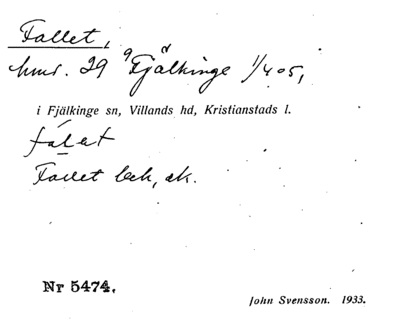 Fallet,
hmd. 29 Fjälkinge 1/405,
i Fjälkinge sn, Villands hd, Kristianstads l.
falet
Fallet beh, ek.
Nr 5474.
John Svensson. 1933.